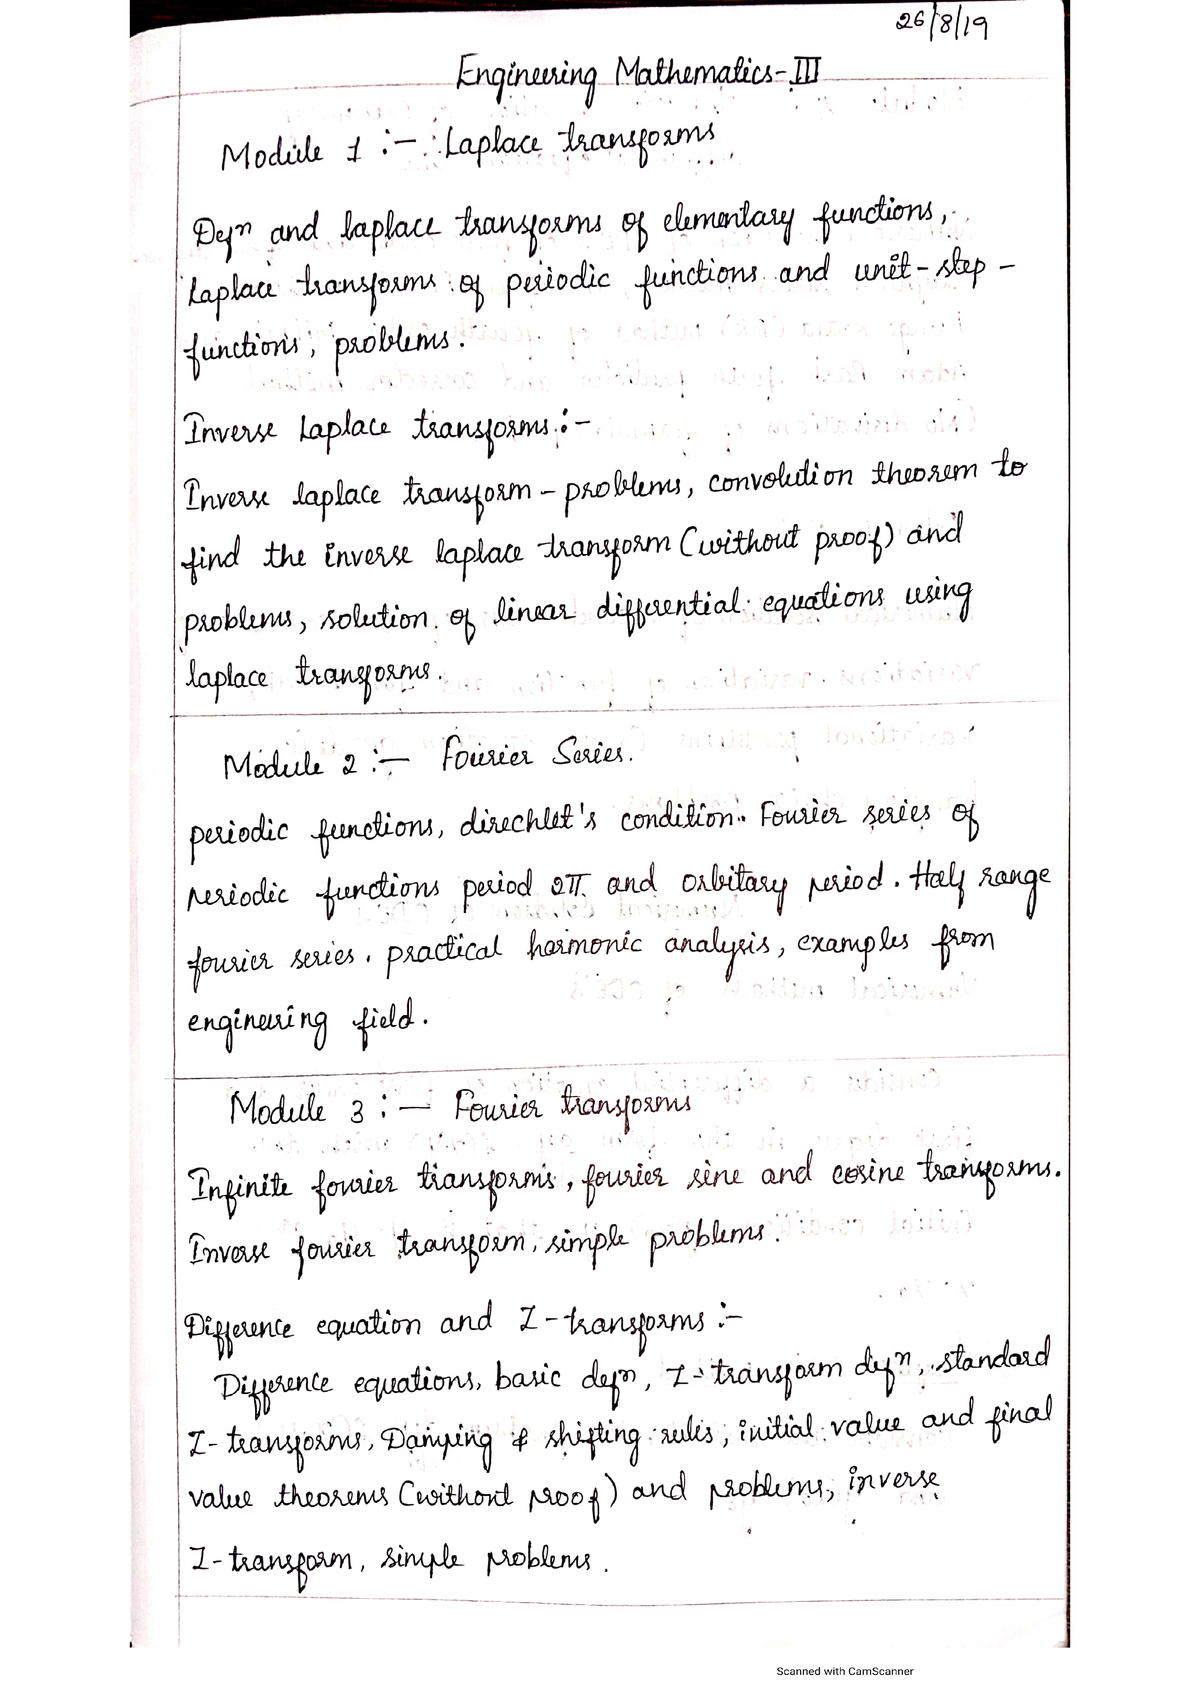 26/8/19
Engineering Mathematics-III
Module 1 :- Laplace transforms
Defn and laplace transforms of elementary functions,
Laplace transforms of periodic functions and unit-step-
functions, problems.
Inverse Laplace transforms :-
Inverse laplace transform - problems, convolution theorem to
find the inverse laplace transform (without proof) and
problems, solution of linear differential equations using
laplace transforms.
Module 2 :- Fourier Series.
periodic functions, direchlet's condition. Fourier series of
periodic functions period 2π and orbitary period. Half range
fourier series. practical harmonic analysis, examples from
engineering field.
Module 3 :- Fourier transforms
Infinite fourier transforms, fourier sine and cosine transforms.
Inverse fourier transform, simple problems.
Difference equation and Z-transforms :-
Difference equations, basic defn, Z-transform defn, standard
Z-transforms, Damping & shifting rules, initial value and final
value theorems (without proof) and problems, inverse
Z-transform, simple problems.
Scanned with CamScanner